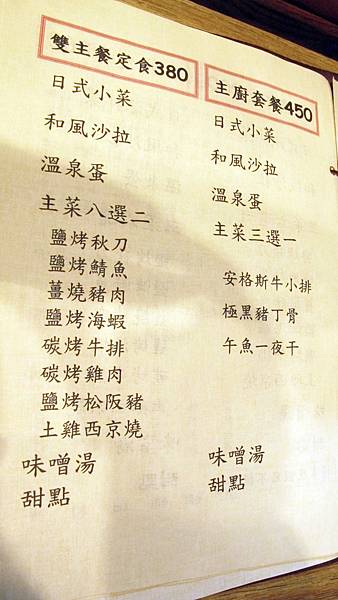 雙主餐定食380
日式小菜
和風沙拉
溫泉蛋
主菜八選二
鹽烤秋刀
鹽烤鯖魚
薑燒豬肉
鹽烤海蝦
碳烤牛排
碳烤雞肉
鹽烤松阪豬
土雞西京燒
味噌湯
甜點
主廚套餐450
日式小菜
和風沙拉
溫泉蛋
主菜三選一
安格斯牛小排
極黑豬丁骨
午魚一夜干
味噌湯
甜點